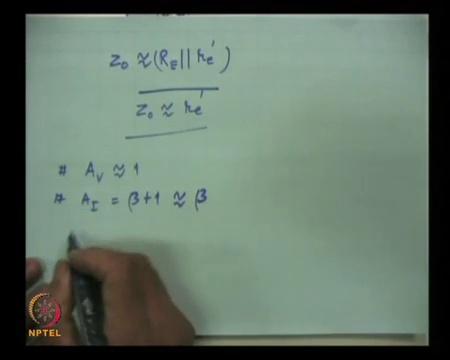 Z₀ ≈ (R_E || r_e')
Z₀ ≈ r_e'
# A_V ≈ 1
# A_I = β+1 ≈ β
NPTEL